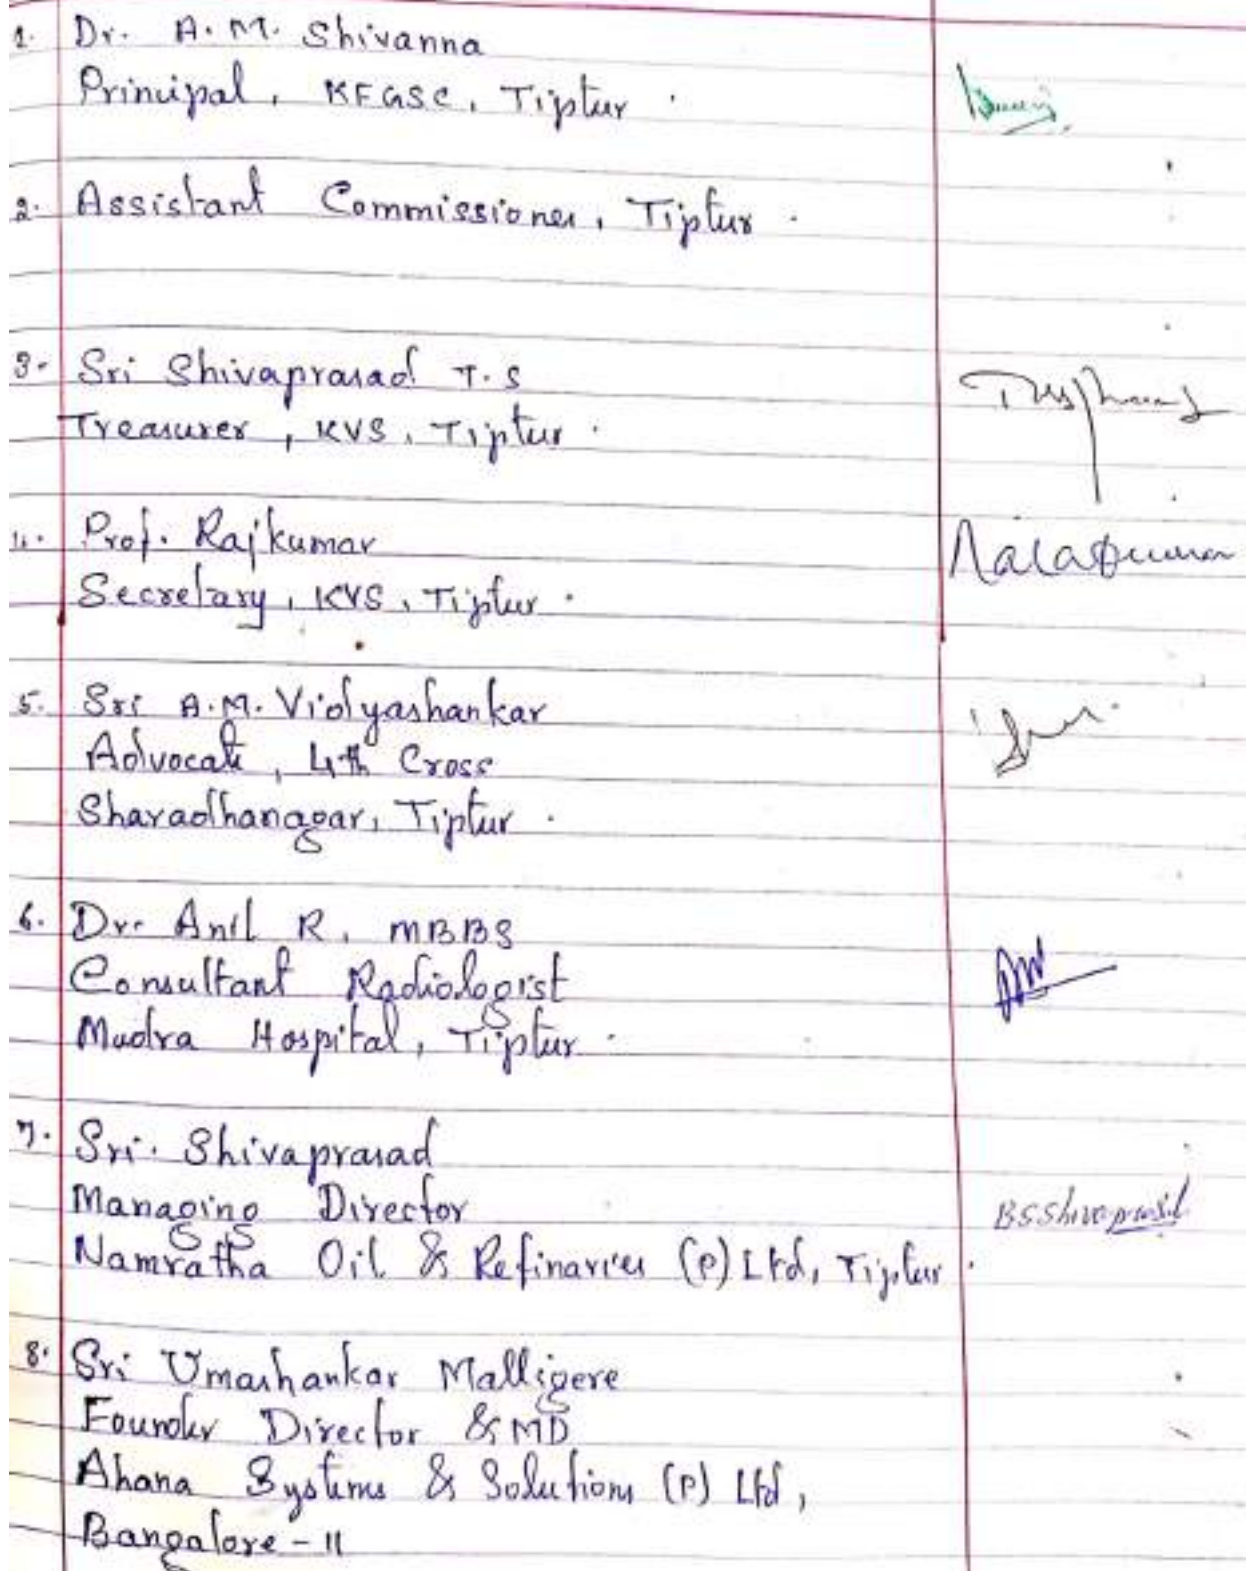 1. Dr. A. M. Shivanna
Principal, KFGSC, Tiptur.
2. Assistant Commissioner, Tiptur.
3. Sri Shivaprasad T. S
Treasurer, KVS, Tiptur.
4. Prof. Rajkumar
Secretary, KVS, Tiptur.
5. Sri A. M. Vidyashankar
Advocate, 4th Cross
Sharadhanagar, Tiptur.
6. Dr. Anil R, MBBS
Consultant Radiologist
Mudra Hospital, Tiptur.
7. Sri. Shivaprasad
Managing Director
BSShivaprasad
Namratha Oil & Refinaries (P) Ltd, Tiptur.
8. Sri Umashankar Malligere
Founder Director & MD
Ahana Systems & Solutions (P) Ltd,
Bangalore - 11